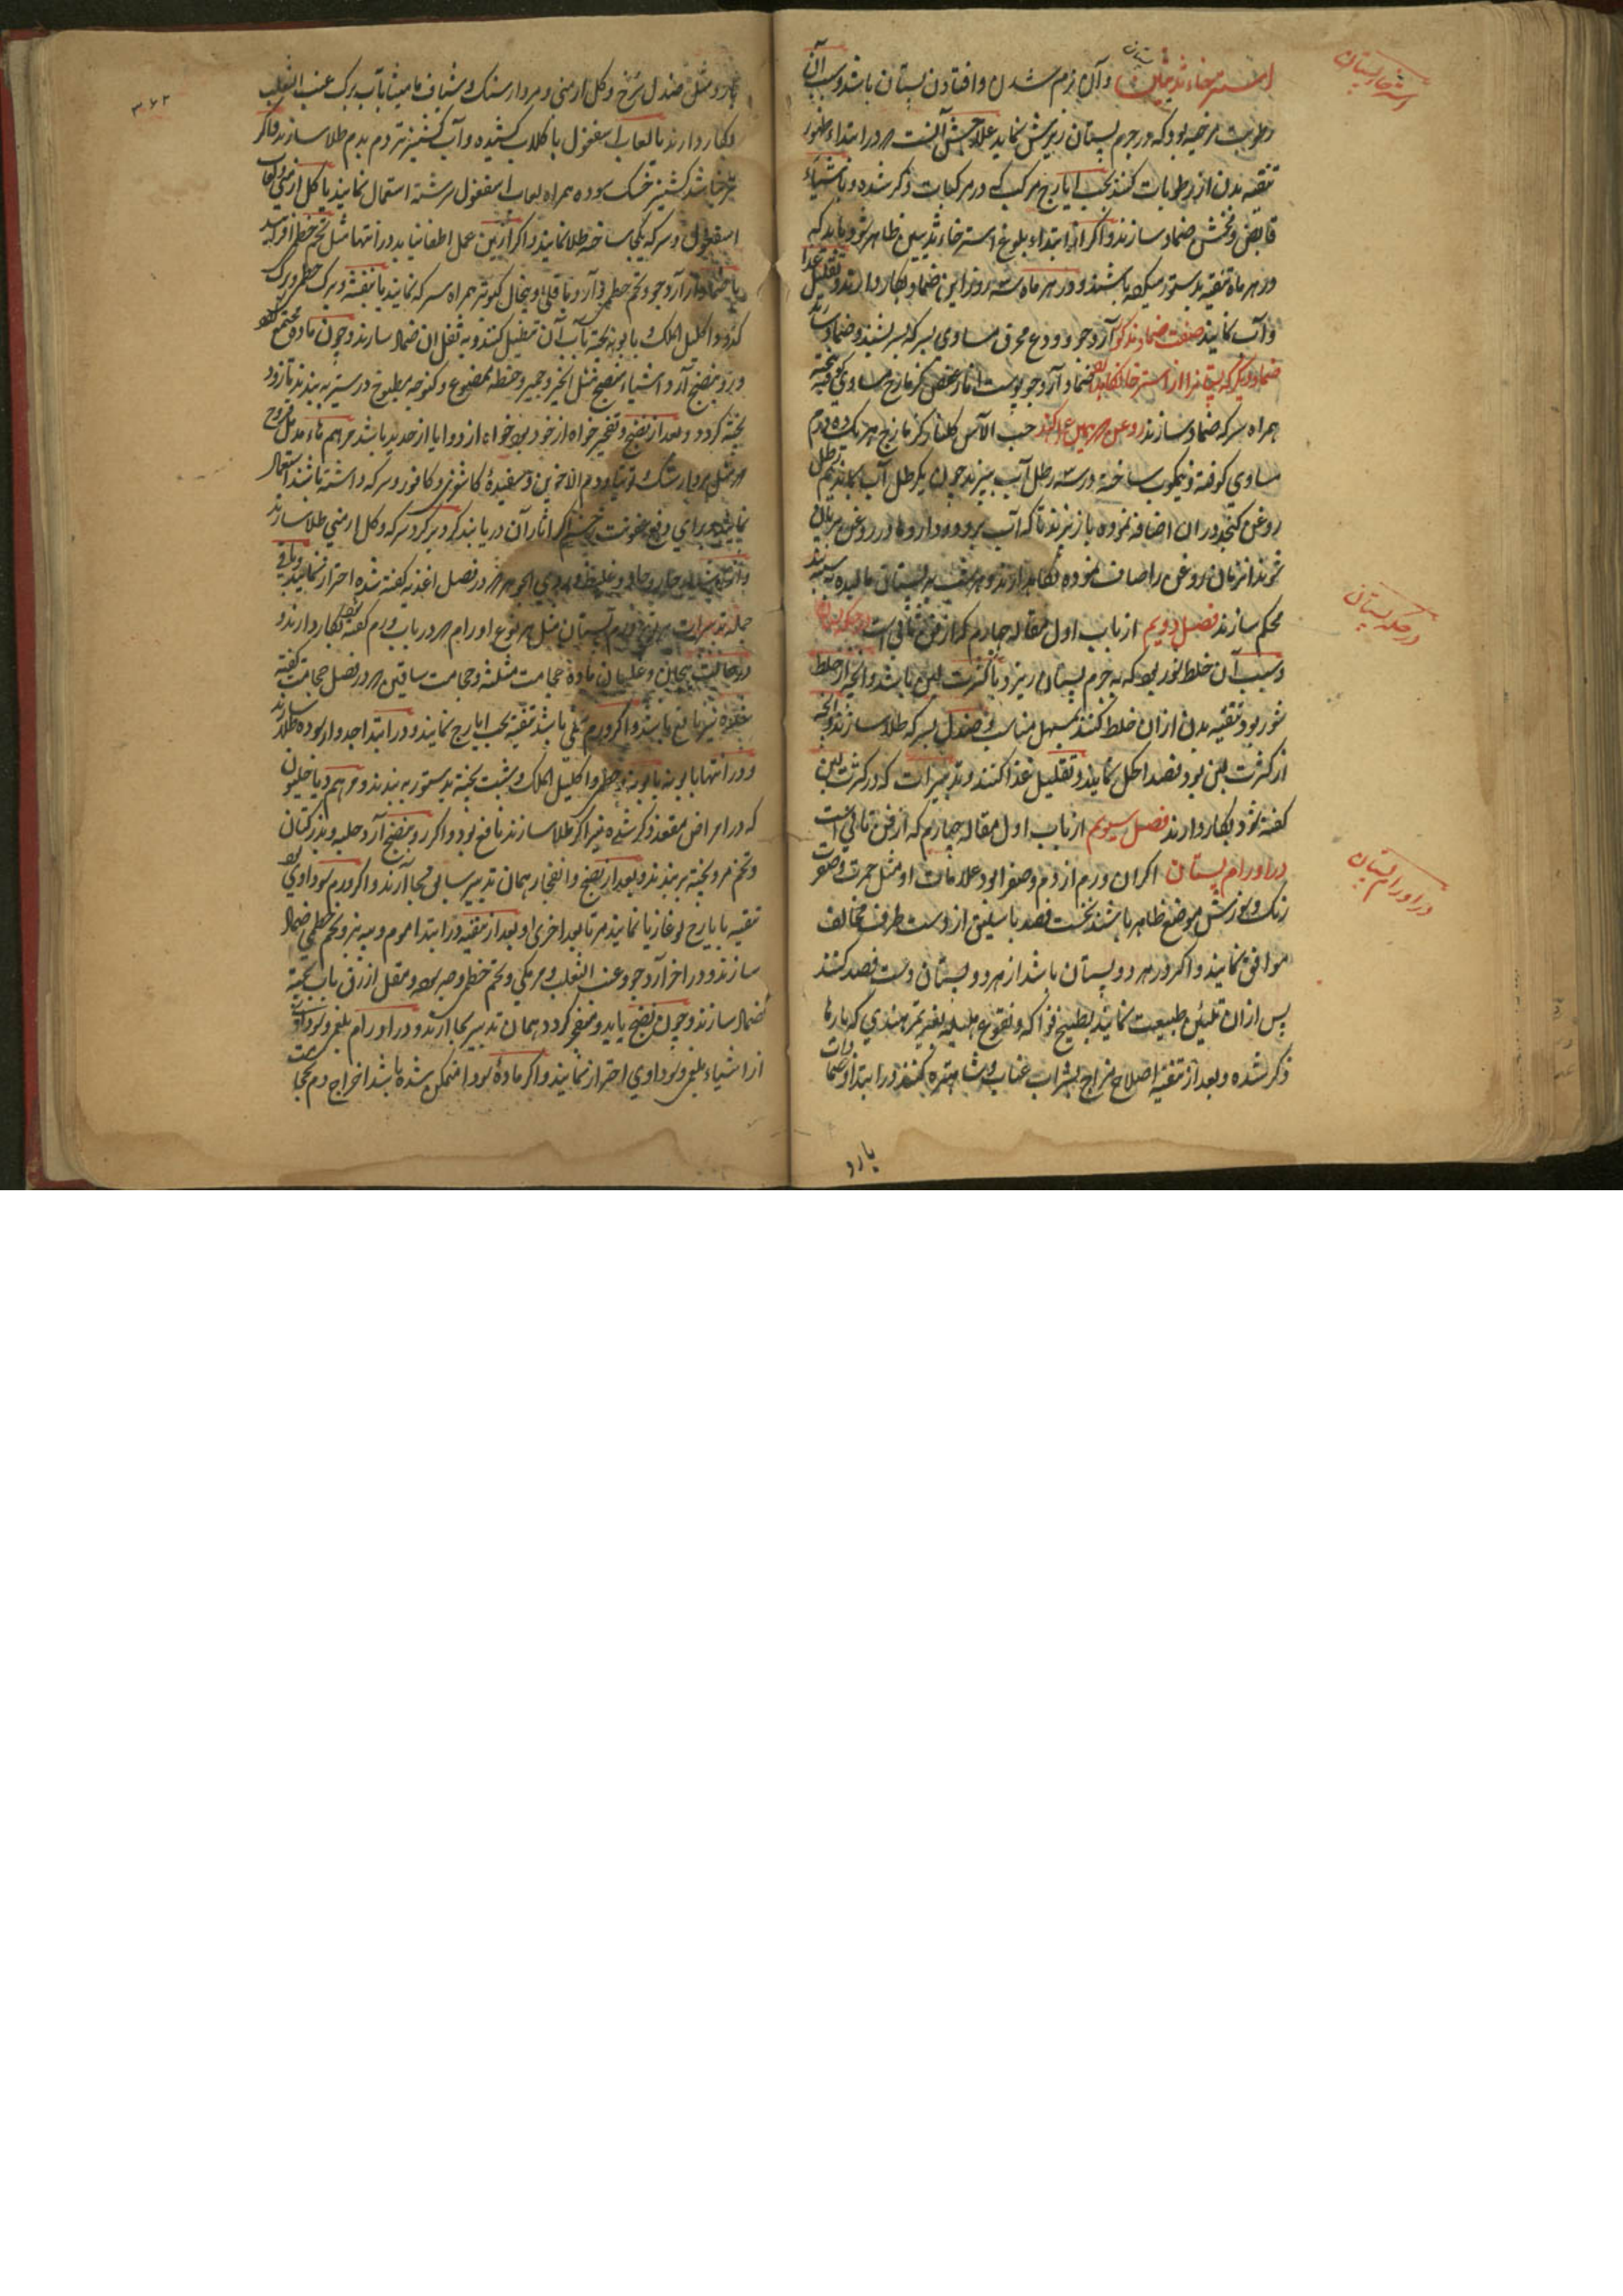 استرخاء پستان
استرخاء ثدیین و آن نرم شدن و افتادن پستان باشد و سبب آن
رطوبت مرخیه بود که در جرم پستان ریزش نماید علاجش آنست که در ابتداء ظهور
تنقیه بدن از رطوبات کنند بحب ایارج مرکب که در مرکبات ذکر شده و باشیاء
قابض و مخشن ضماد سازند و اگر از ابتداء بلوغ استرخاء ثدیین ظاهر شود باید که
در هر ماه تنقیه بدستور میکرده باشند و در هر ماه سه روز این ضماد بکار دارند و تقلیل غذا
و آب نمایند صفت ضماد مذکور آرد جو و ودع محرق مساوی بسرکه بسرشند و ضماد سازند
ضماد دیگر که پستانرا از استرخا نگاهدارد ضماد آرد جو پوست انار عفص کزمازج مساوی کوفته بیخته
همراه سرکه ضماد سازند روغن که همین عمل کند حب الآس گلنار کزمازج هر یک ده درم
مساوی کوفته نیمکوب ساخته در سه رطل آب بپزند چون یکرطل آب بماند نیم رطل
روغن کنجد در ان اضافه نموده باز بپزند تا که آب برود و داروها در روغن بریان
شوند انزمان روغن را صاف نموده نگاهدارند و هر شب به پستان مالیده به بندند
در حکه پستان
محکم سازند فصل دویم از باب اول مقاله چهارم که از فن ثانی است در حکه پستان
و سبب آن خلط شور بود که به جرم پستان ریزد یا کثرت لبن باشد و انچه از خلط
شور بود تنقیه بدن ازان خلط کنند بمسهل مناسب و صندل بسرکه طلا سازند و انچه
از کثرت لبن بود فصد اکحل نمایند و تقلیل غذا کنند و تدبیرات که در کثرت لبن
گفته شود بکار دارند فصل سیوم از باب اول مقاله چهارم که از فن ثانی است
در اورام پستان
در اورام پستان اگر ان ورم از دم و صفرا بود علامات او مثل حمرت و صفرت
رنگ و سوزش موضع ظاهر باشند نخست فصد باسلیق از دست طرف مخالف
موافق نمایند و اگر در هر دو پستان باشد از هر دو پستان دست فصد کنند
پس ازان تلیین طبیعت نمایند بطبیخ فواکه و نقوع هلیله بغیر تمر هندی که بارها
ذکر شده و بعد از تنقیه اصلاح مزاج بشراب عناب و شاهتره کنند در ابتدا ضمادات
بارد
۳۶۲
بارد مثل صندل سرخ و گل ارمنی و مردارسنگ و شیاف مامیثا بآب برگ عنب الثعلب
بکار دارند یا لعاب اسفغول با گلاب کشیده و آب کشنیز تر دم بدم طلا سازند و اگر
تر نباشد کشنیز خشک سوده همراه لعاب اسفغول سرشته استعمال نمایند یا گل ارمنی و لعاب
اسفغول و سرکه یکجا ساخته طلا نمایند و اگر ازین عمل اطفا نیابد در انتها مثل تخم خطمی
یا ضماد از آرد جو و تخم خطمی و آرد باقلی همراه سرکه نمایند یا بنفشه و برگ خطمی و برگ
کدو و اکلیل الملک بابونه پخته بآب آن تنطیل کنند و به ثفل ان ضماد سازند و چون ماده مجتمع شود
و رو بنضج آرد اشیاء منضج مثل انجیر و خمیر و حنطه ممضوغ و کنوچه مطبوخ در شیر به بندند تا زود
پخته گردد و بعد از نضج و تفجیر خواه از خود بود خواه از دوا یا از حدید باشد مرهم هاء مدمل
که مثل مردارسنگ توتیا و دم الاخوین و سفیده کاشغری و کافور و سرکه داشته باشند استعمال
نمایند و برای دفع عفونت زخم اگر اثار آن دریابند گرد بر گرد سرکه و گل ارمنی طلا سازند
و از اغذیه حار و حاد و غلیظ و ردی الجوهر که در فصل اغذیه گفته شده احتراز نمایند و باقی
جمله تدبیرات هر نوع ورم پستان مثل هر نوع اورام که در باب ورم گفته شد بکار دارند و
در حالت هیجان و غلیان ماده حجامت مثلثه و حجامت ساقین که در فصل حجامت گفته
شده نیز نافع باشد و اگر ورم بلغمی باشد تنقیه بحب ایارج نمایند و در ابتدا جدوار سوده طلا سازند
و در انتها بابونه خطمی و اکلیل الملک و شبت پخته بدستور به بندند و مرهم دیاخلیون
که در امراض مقعد ذکر شده نیز اگر طلا سازند نافع بود و اگر رو بنضج آرد حلبه و بزر کتان
و تخم مرو پخته بر بندند و بعد از نضج و انفجار همان تدبیر سابق بجا آرند و اگر ورم سوداوی بود
تنقیه بایارج لوغازیا نمایند مرة بعد اخری و بعد از تنقیه در ابتدا موم و پیه بز و تخم خطمی ضماد
سازند و در اخر آرد جو و عنب الثعلب و مر مکی و تخم خطمی و صبر و مقل ازرق باب پخته
ضماد سازند و چون نضج یابد و منفجر گردد همان تدبیر بجا ارند و در اورام بلغمی و سوداوی
از اشیاء بلغمی و سوداوی احتراز نمایند و اگر ماده سودا متمکن شده باشد اخراج دم بحجامت